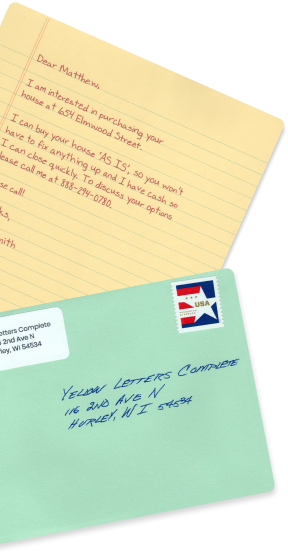 Dear Matthew,
I am interested in purchasing your
house at 654 Elmwood Street.
I can buy your house "AS IS", so you won't
have to fix anything up and I have cash so
I can close quickly. To discuss your options
please call me at 888-294-0780.
call!
USA
Complete
2nd Ave N
WI 54534
YELLOW LETTERS COMPLETE
116 2ND AVE N
HURLEY, WI 54534